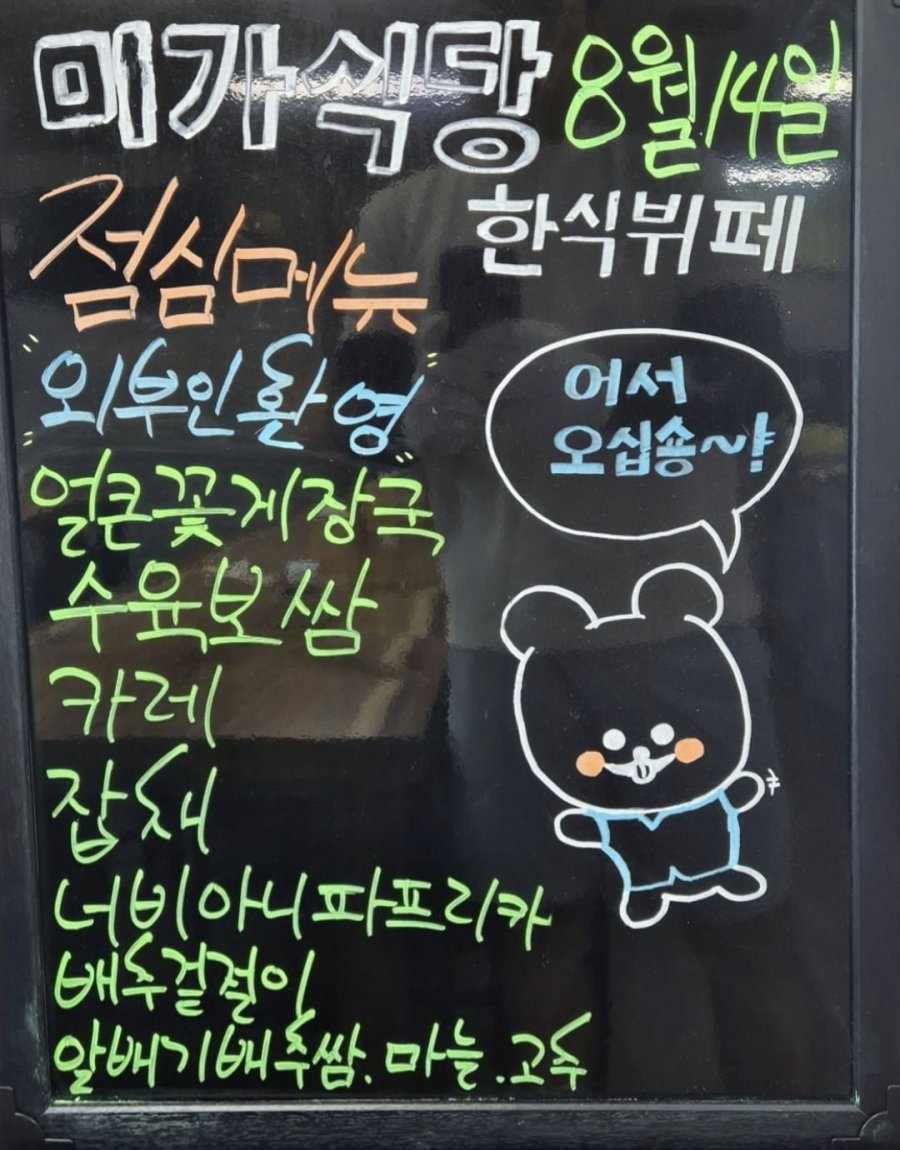 미가식당 8월.14일
한식뷔페
점심메뉴
"외부인환영"
어서
오십숑~!
얼큰꽃게장국
수육보쌈
카레
잡채
너비아니파프리카
배추겉절이
알배기배추쌈.마늘.고추